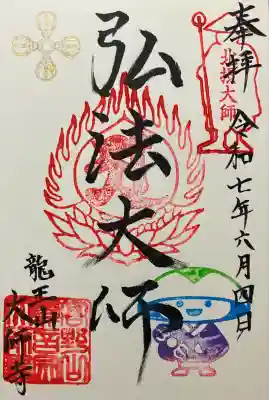 奉拝 令和七年六月四日
弘法大師
龍王山
大師寺